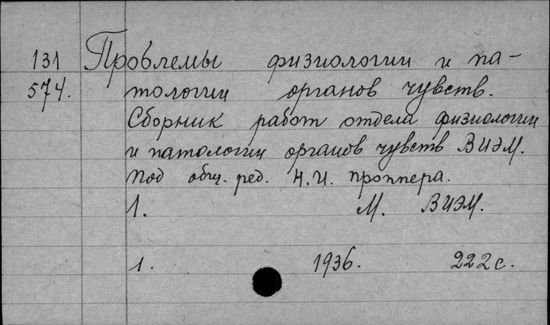 131 Проблемы физиологии и па-
574. тологии органов чувств.
Сборник работ отдела физиологии
и патологии органов чувств ВИЭМ.
Под общ. ред. Н.И. Проппера.
1. М. ВИЭМ.
1. 1936. 222 с.